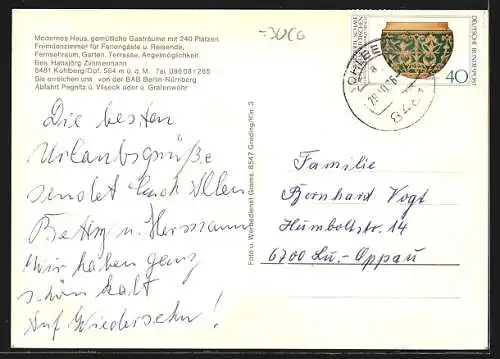 Modernes Haus, gemütliche Gasträume mit 240 Plätzen.
Fremdenzimmer für Feriengäste u. Reisende,
Fernsehraum, Garten, Terrasse, Angelmöglichkeit.
Bes. Hansjörg Zimmermann
8481 Kohlberg/Opf. 564 m ü. d. M. Tel. 09608/265
Sie erreichen uns von der BAB Berlin-Nürnberg
Abfahrt Pegnitz ü. Vilseck oder ü. Grafenwöhr
Die besten
Urlaubsgrüße
sendet Euch Allen
Betty u. Hermann
Wir haben ganz
schön kalt
Auf Wiedersehn!
Foto u. Werbedienst Grams, 8547 Greding/Kin. 3
DEUTSCHE BUNDESPOST
40
28.10.76
Familie
Bernhard Vogt
Humboltstr. 14
6700 Lu.-Oppau